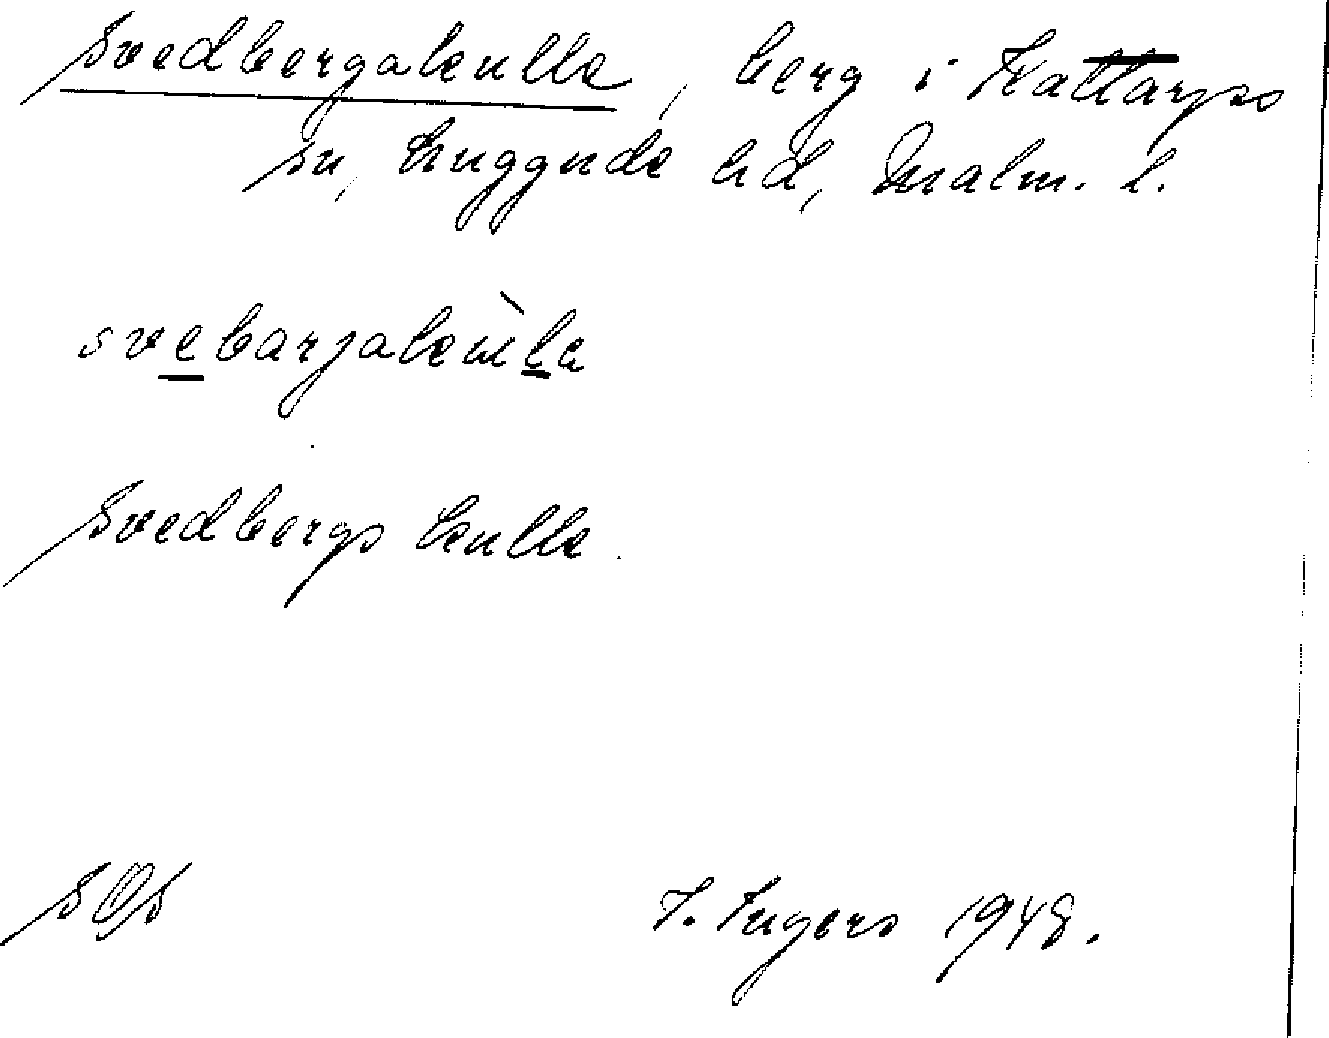 Svedbergakulle, berg i Kattarps
sn, Luggude hd, Malm. l.
svebarjakùla
Svedbergs kulle.
SOS
I. Ingers 1948.